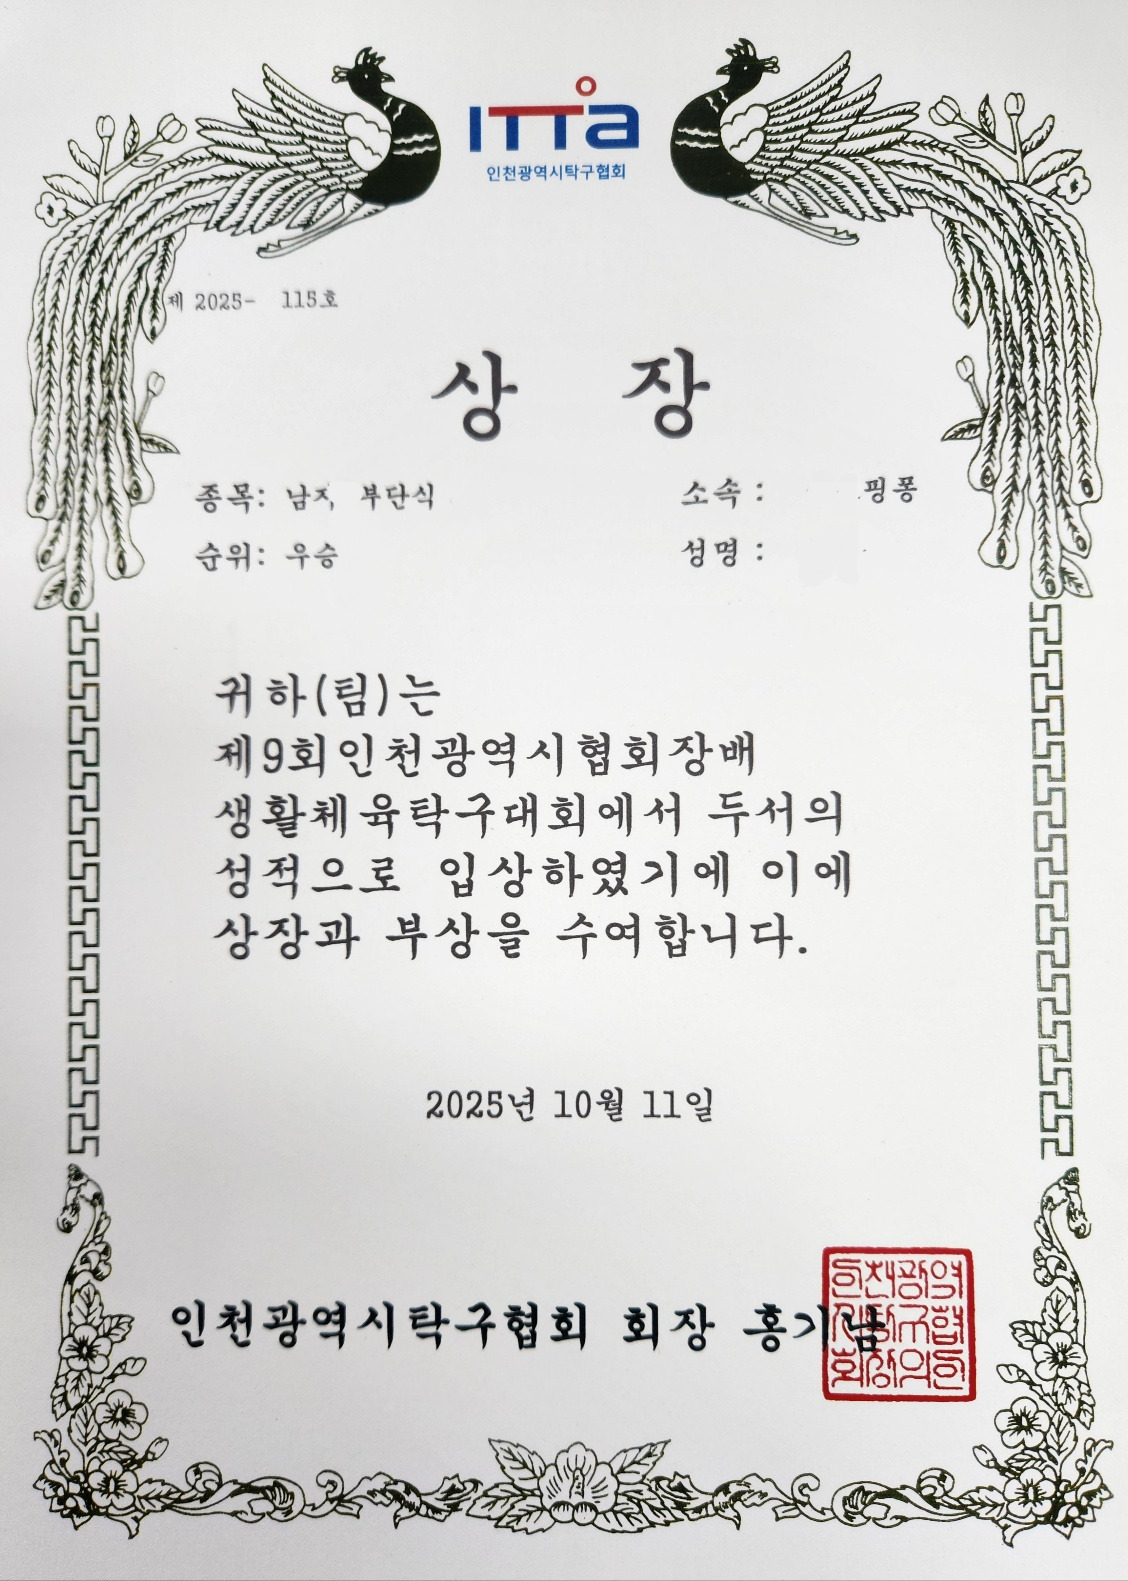 ITTa
인천광역시탁구협회
제 2025- 115호
상 장
종목: 남자 부단식
소속 : 핑퐁
순위: 우승
성명 :
귀하(팀)는
제9회인천광역시협회장배
생활체육탁구대회에서 두서의
성적으로 입상하였기에 이에
상장과 부상을 수여합니다.
2025년 10월 11일
인천광역시탁구협회 회장 홍기남